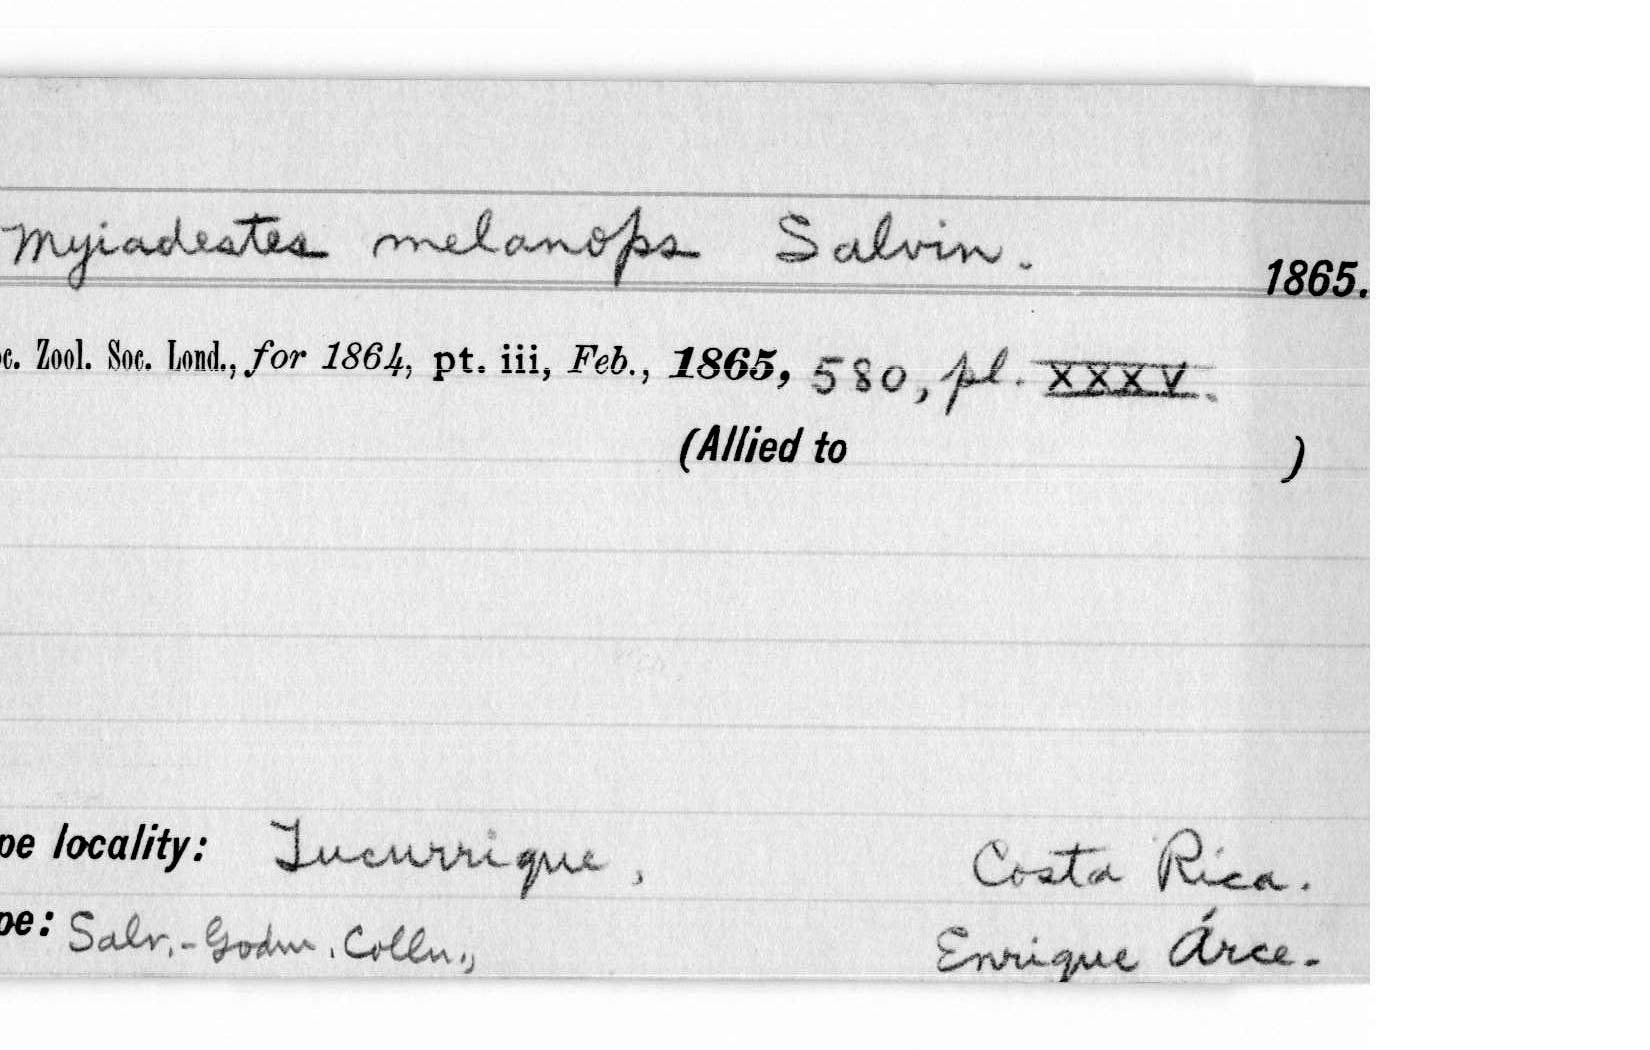 Myiadestes melanops Salvin. 1865.
oc. Zool. Soc. Lond., for 1864, pt. iii, Feb., 1865, 580, pl. XXXV.
(Allied to )
pe locality: Tucurrique, Costa Rica.
pe: Salv.-Godm. Colln., Enrique Árce.